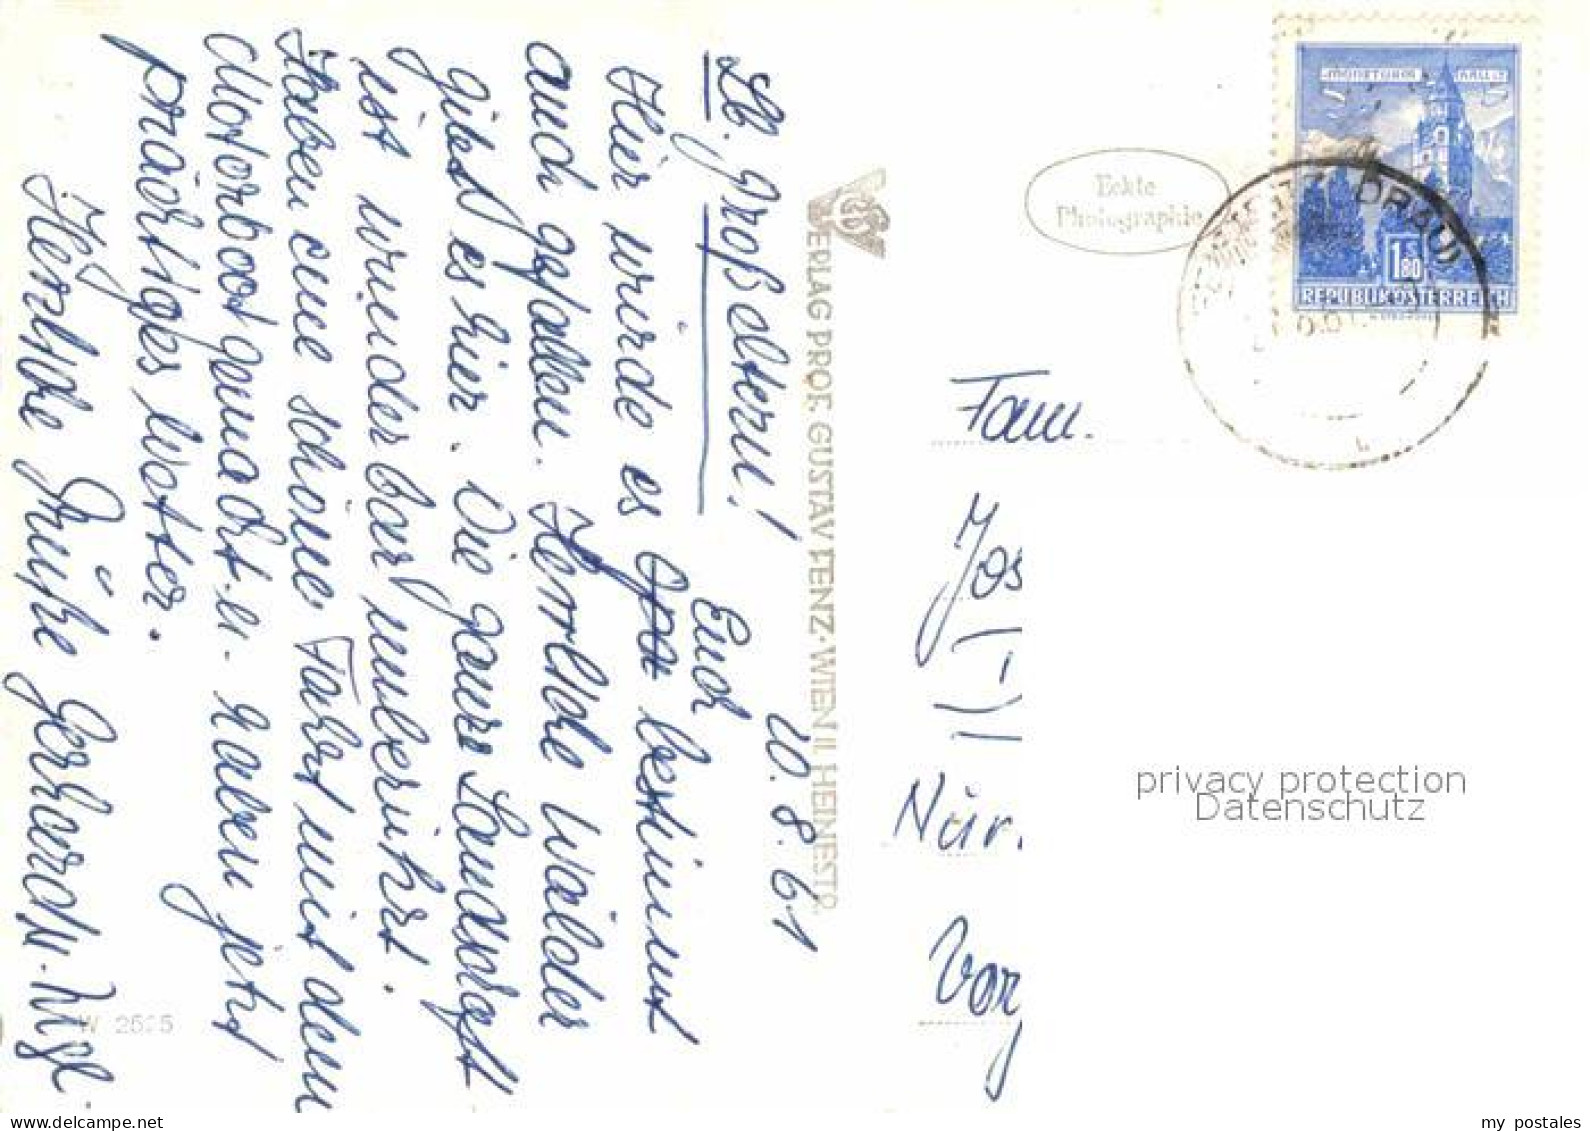 20.8.61
Lb. Großeltern!
Euch
Hier würde es Opa bestimmt
auch gefallen. Herrliche Wälder
gibt es hier. Die ganze Landschaft
ist wunderbar unberührt.
Haben eine schöne Fahrt mit dem
Motorboot gemacht u. haben jetzt
prächtiges Wetter.
Herzliche Grüße Gerhard u.
W 2525
VERLAG PROF. GUSTAV FENZ·WIEN II. HEINESTR.
Echte
Photographie
MÜNZTURM HALL I.T.
1.80
S
REPUBLIK ÖSTERREICH
DRAU
Fam.
Jos
Nür
Vor
privacy protection
Datenschutz
my postales